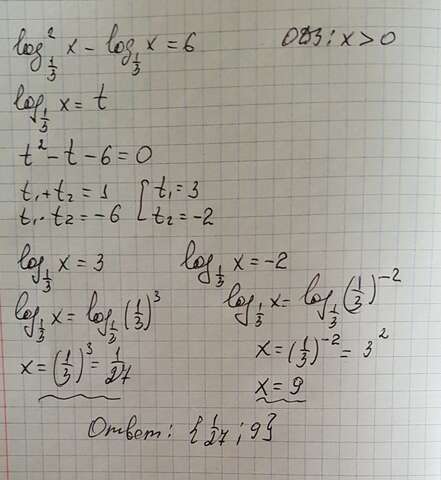 log²_{1/3} x - log_{1/3} x = 6 ОДЗ: x > 0
log_{1/3} x = t
t² - t - 6 = 0
t₁ + t₂ = 1 [ t₁ = 3
t₁ · t₂ = -6 [ t₂ = -2
log_{1/3} x = 3 log_{1/3} x = -2
log_{1/3} x = log_{1/3} (1/3)³ log_{1/3} x = log_{1/3} (1/3)⁻²
x = (1/3)³ = 1/27 x = (1/3)⁻² = 3²
x = 9
Ответ: {1/27; 9}